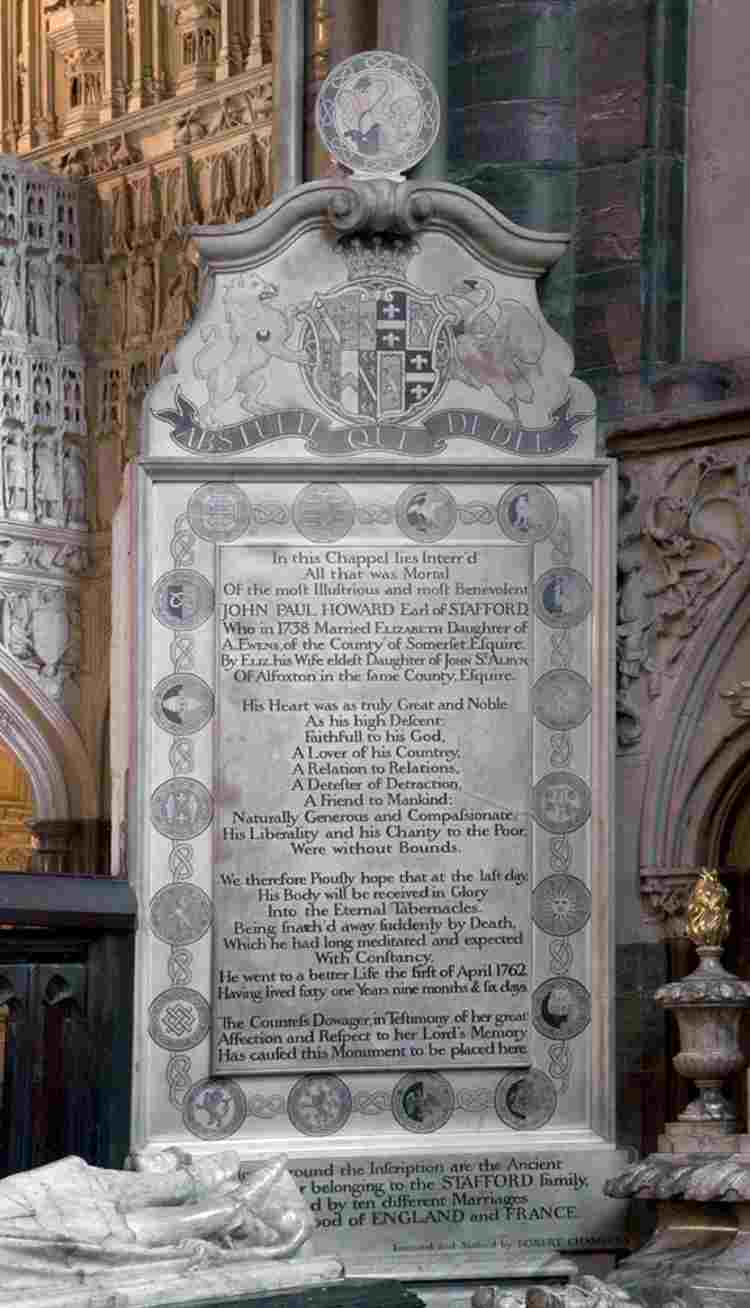 ABSTULIT QUI DEDIT.
In this Chappel lies Interr'd
All that was Mortal
Of the moſt Illuſtrious and moſt Benevolent
JOHN PAUL HOWARD Earl of STAFFORD.
Who in 1738 Married ELIZABETH Daughter of
A. EWENS, of the County of Somerſet, Eſquire.
By ELIZ. his Wife eldeſt Daughter of JOHN St. ALBYN,
Of Alfoxton in the ſame County, Eſquire.
His Heart was as truly Great and Noble
As his high Deſcent:
Faithfull to his God,
A Lover of his Countrey,
A Relation to Relations,
A Deteſter of Detraction,
A Friend to Mankind:
Naturally Generous and Compaſsionate.
His Liberality and his Charity to the Poor,
Were without Bounds.
We therefore Piouſly hope that at the laſt day,
His Body will be received in Glory
Into the Eternal Tabernacles.
Being ſnatch'd away ſuddenly by Death,
Which he had long meditated and expected
With Conſtancy.
He went to a better Life the firſt of April 1762
Having lived ſixty one Years nine months & ſix days
The Counteſs Dowager, in Teſtimony of her great
Affection and Reſpect to her Lord's Memory
Has cauſed this Monument to be placed here
round the Inſcription are the Ancient
belonging to the STAFFORD family,
by ten different Marriages
of ENGLAND and FRANCE.
Invented and by ROBERT